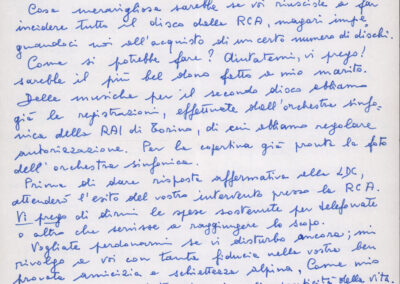 Cosa meravigliosa sarebbe se voi riusciste a far
incidere tutto il disco dalla RCA, magari impe-
gnandoci noi all'acquisto di un certo numero di dischi.
Come si potrebbe fare? Aiutatemi, vi prego!
sarebbe il più bel dono fatto a mio marito.
Delle musiche per il secondo disco abbiamo
già le registrazioni, effettuate dall'orchestra sinfo-
nica della RAI di Torino, di cui abbiamo regolare
autorizzazione. Per la copertina già pronta la foto
dell'orchestra sinfonica.
Prima di dare risposta affermativa alla LDC,
attenderò l'esito del vostro intervento presso la RCA.
Vi prego di dirmi le spese sostenute per telefonate
o altro che servisse a raggiungere lo scopo.
Vogliate perdonarmi se vi disturbo ancora; mi
rivolgo a voi con tanta fiducia nella vostra ben
provata amicizia e schiettezza alpina, Come mio
della vita.